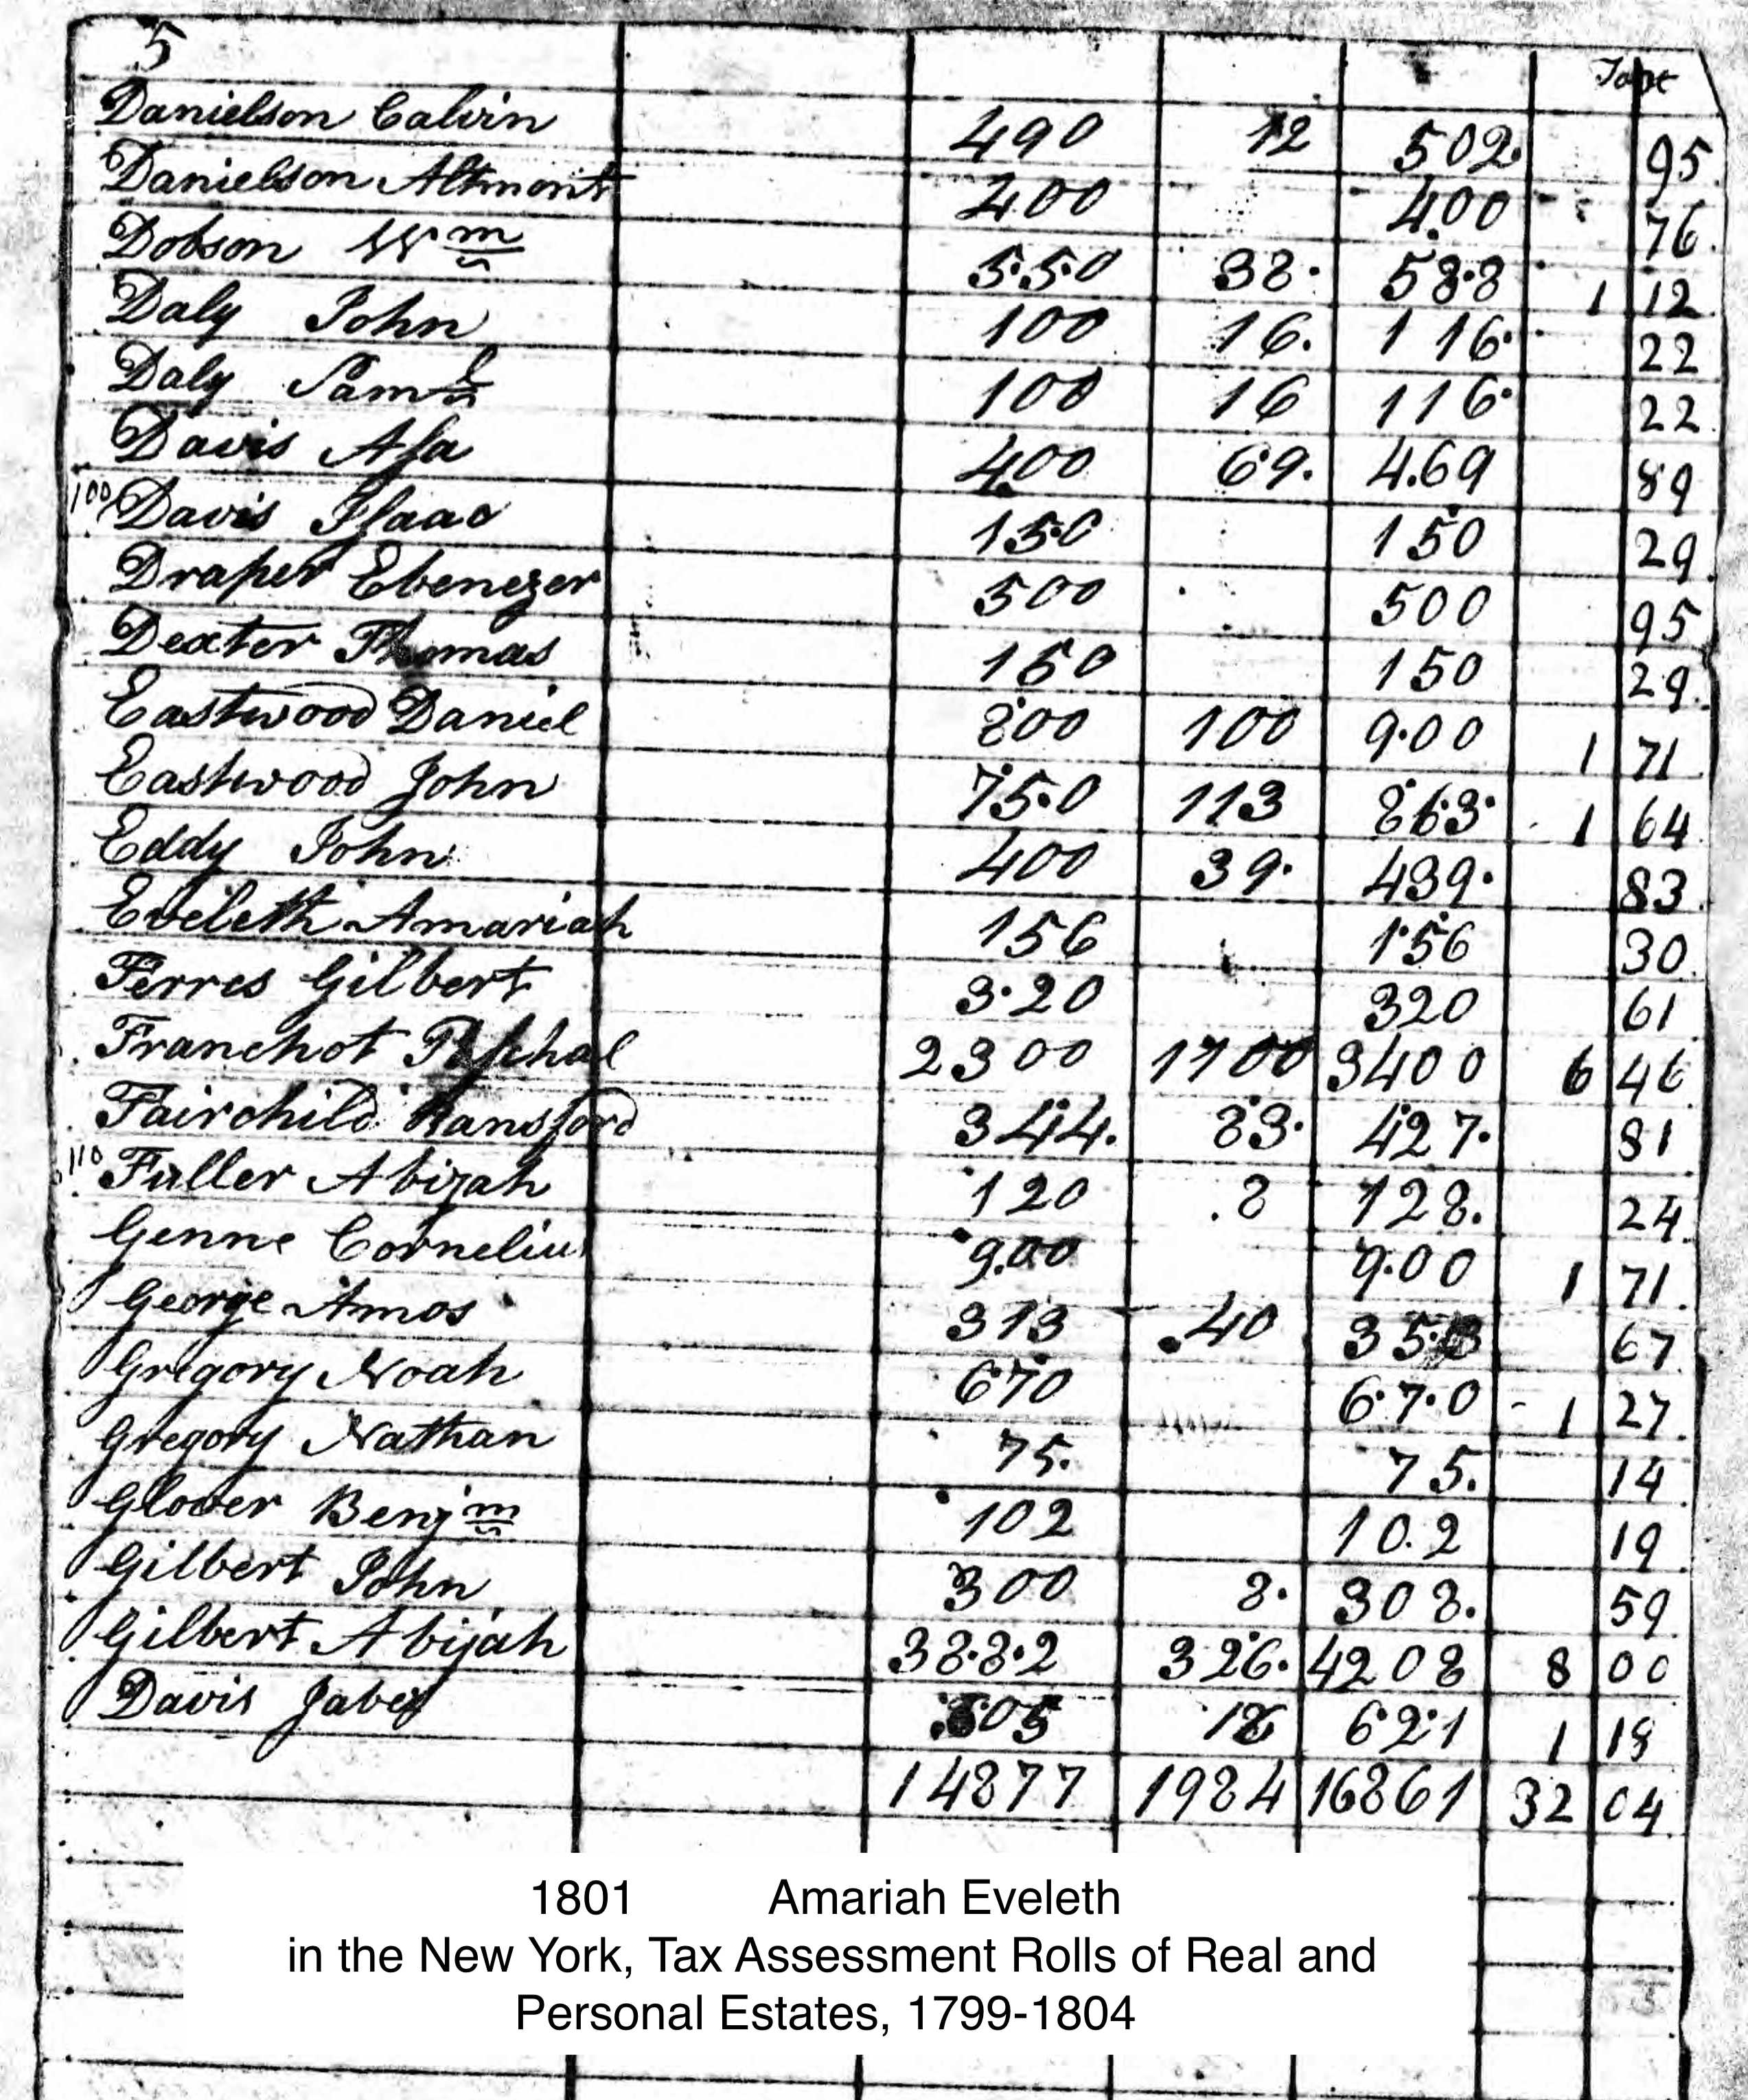 5
Danielson Calvin 490 12 502 95
Danielson Altmont 400 400 76
Dobson Wm 550 38 588 1 12
Daly John 100 16 116 22
Daly Saml 100 16 116 22
Davis Asa 400 69 469 89
100 Davis Isaac 150 150 29
Draper Ebenezer 500 500 95
Dexter Thomas 150 150 29
Eastwood Daniel 800 100 900 1 71
Eastwood John 750 113 863 1 64
Eddy John 400 39 439 83
Eveleth Amariah 156 156 30
Ferres Gilbert 320 320 61
Franchot 2300 3400 6 46
Fairchild Ransford 344 83 427 81
110 Fuller Abijah 120 8 128 24
Genne Cornelius 900 900 1 71
George Amos 313 40 353 67
Gregory Noah 670 670 1 27
Gregory Nathan 75 75 14
Glover Benjm 102 102 19
Gilbert John 300 8 308 59
Gilbert Abijah 3882 326 4208 8 00
Davis Jabez 621 1 18
14877 1984 16861 32 04
1801 Amariah Eveleth
in the New York, Tax Assessment Rolls of Real and
Personal Estates, 1799-1804